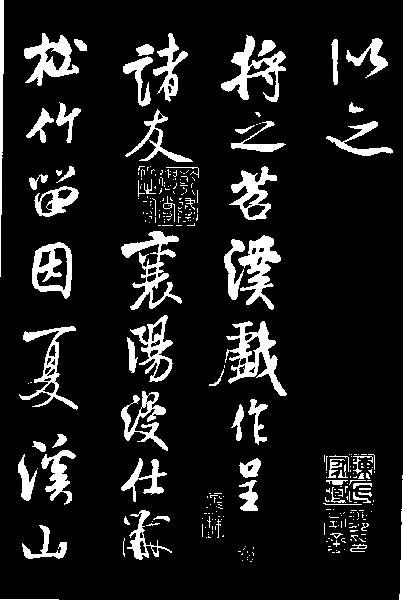 以之
將之苕溪戲作呈
諸友襄陽漫仕黻
松竹留因夏溪山